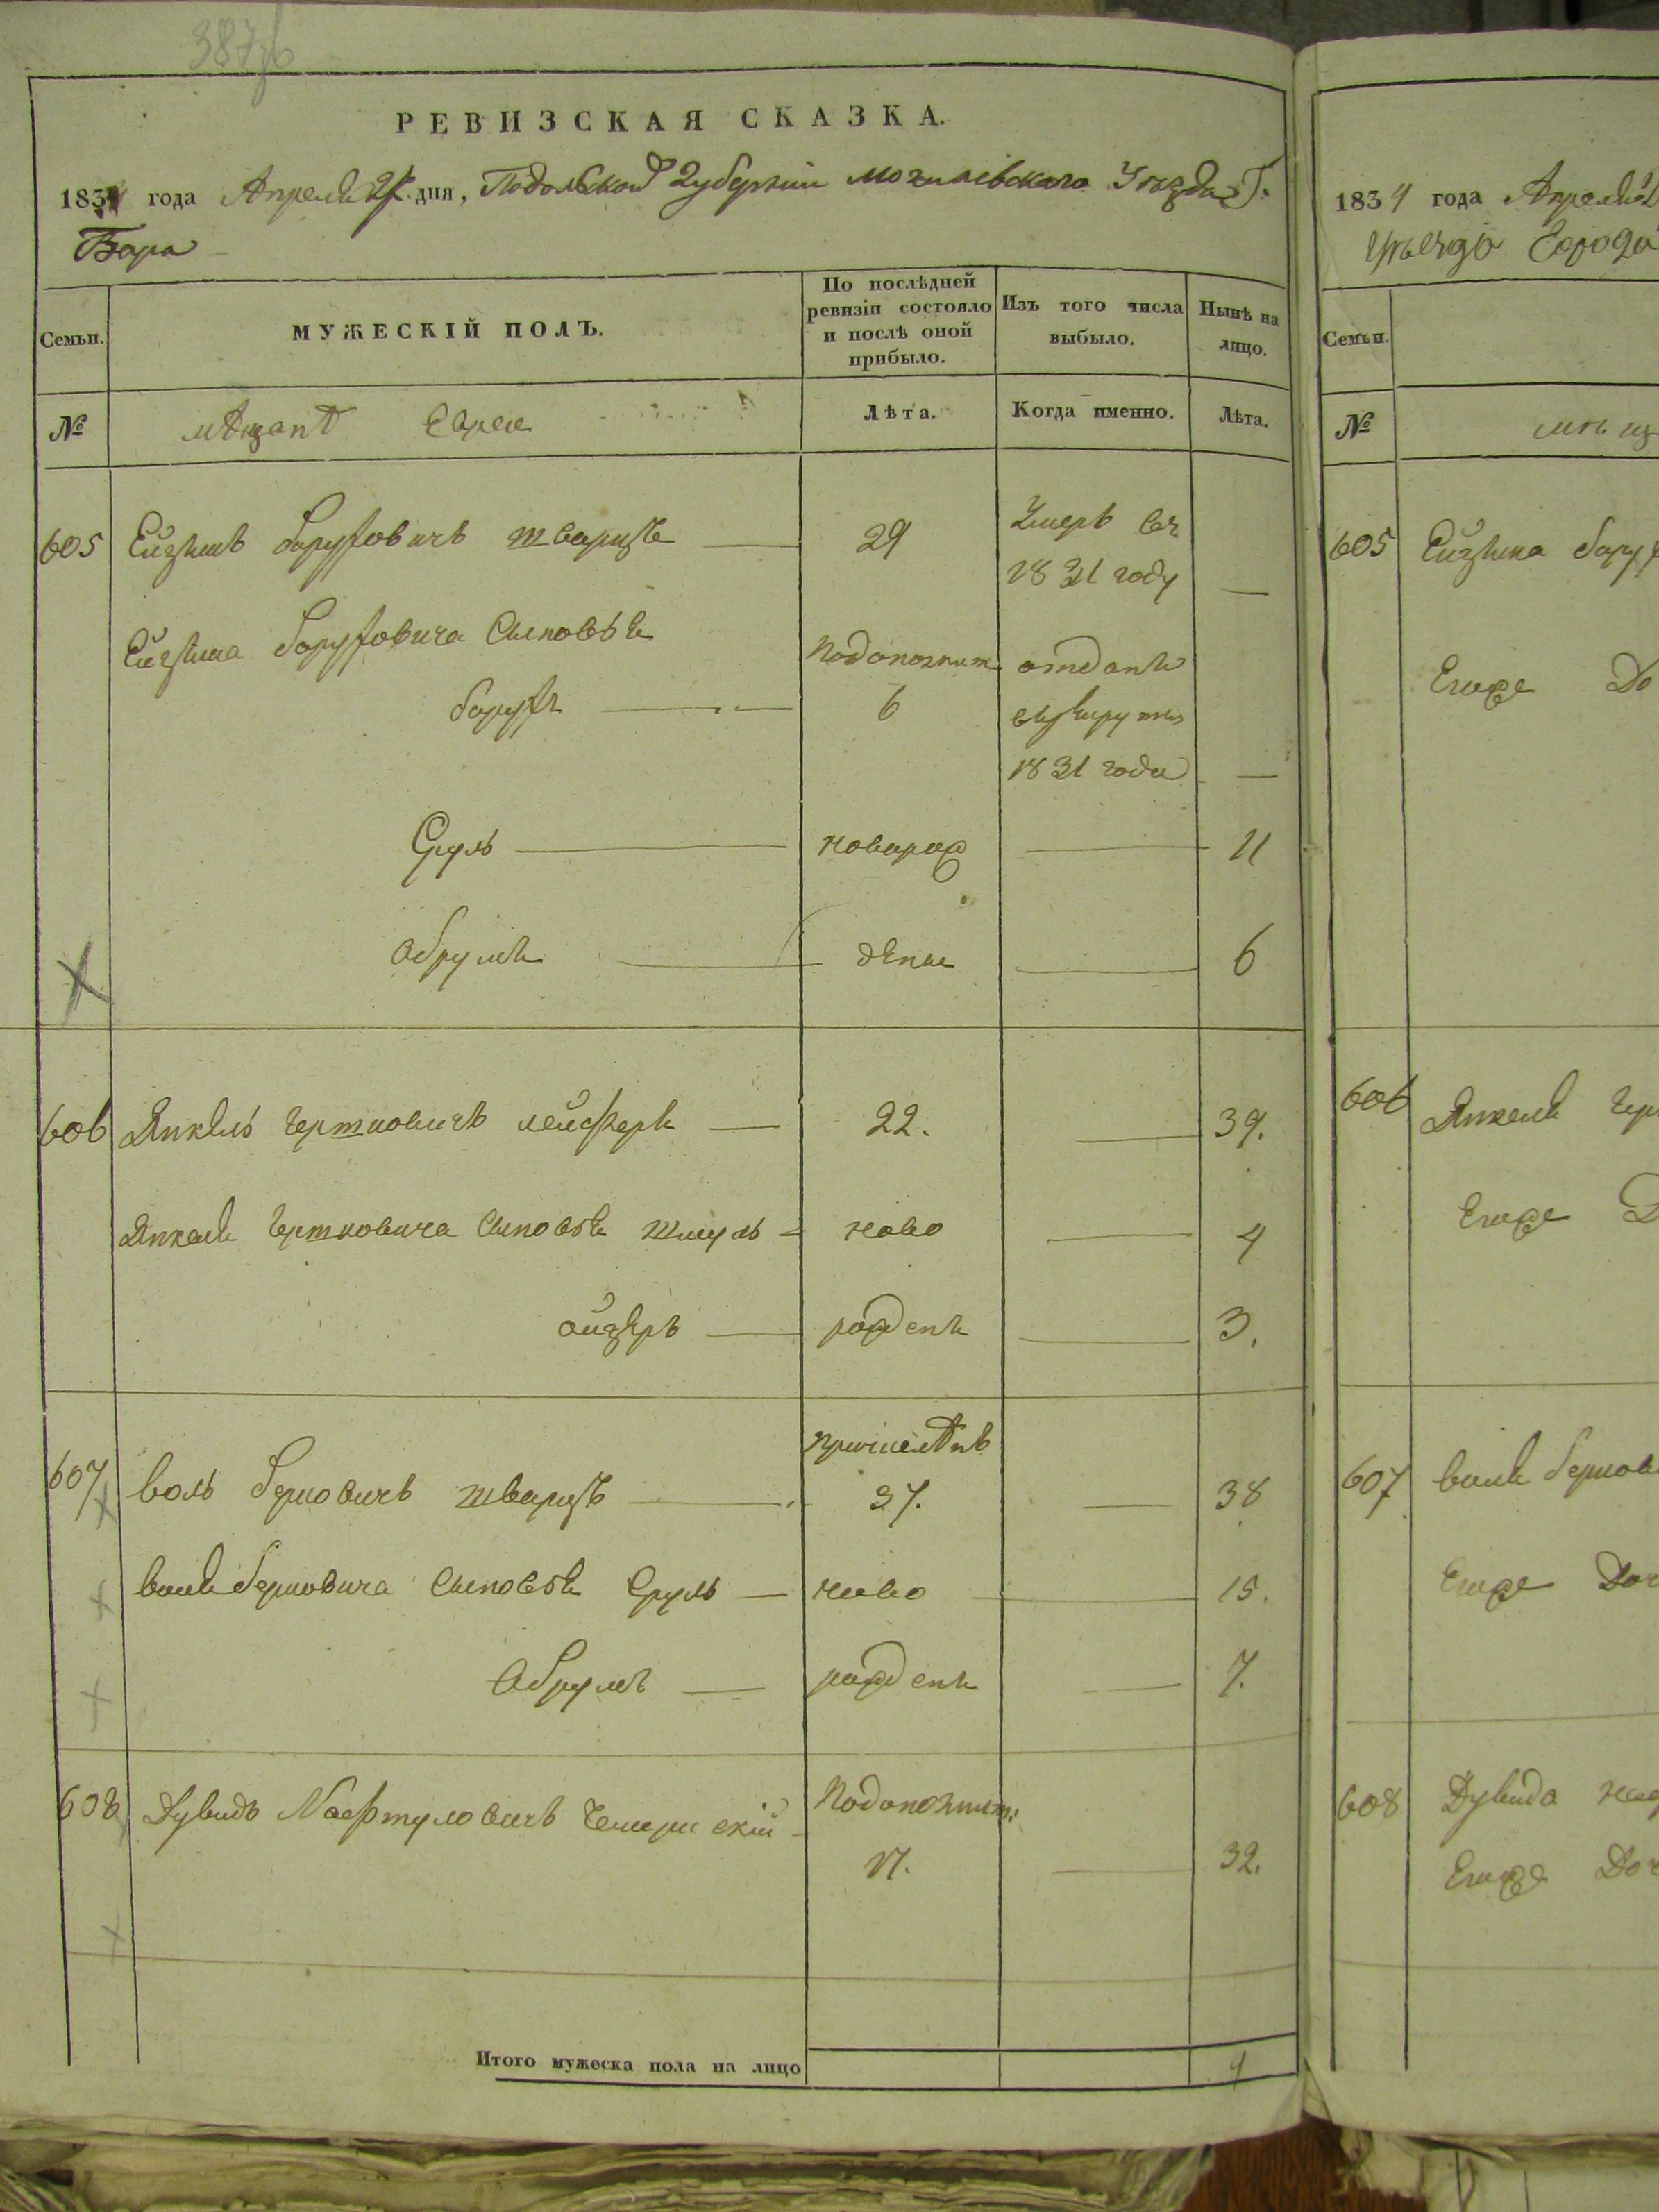 РЕВИЗСКАЯ СКАЗКА.
1834 года Апреля дня, Подольской Губернии Могилевского Уезда Г.
Бара
Семьи.
МУЖЕСКІЙ ПОЛЪ.
По послѣдней ревизіи состояло и послѣ оной прибыло.
Изъ того числа выбыло.
Нынѣ на лицо.
№
мещанѣ Евреи
Лѣта.
Когда именно.
Лѣта.
605 Ейзикъ Боруховичъ Шварцъ 29 Умеръ въ
1831 году —
Ейзика Боруховича Сыновья
Борухъ 6 отданъ
в рекруты
1831 года —
Сруль новорож 11
Абрумъ дены 6
606 Янкель Гершковичъ Лейферъ 22. 39.
Янкеля Гершковича Сыновья Шмуль ново 4
Ойзеръ рожденъ 3.
607 Воль Берковичъ Шварцъ 37. 38
Воля Берковича Сыновья Сруль ново 15.
Абрумъ рожденъ 7.
608 Дувидъ Нафтуловичъ
17. 32.
Итого мужеска пола на лицо
1834 года Апреля
уезда Города
Семьи.
№
605 Ейзика Борух
Егоже До
606 Янкеля Гер
Егоже Д
607 Воля Берков
Егоже Доч
608 Дувида Наф
Егоже Доч